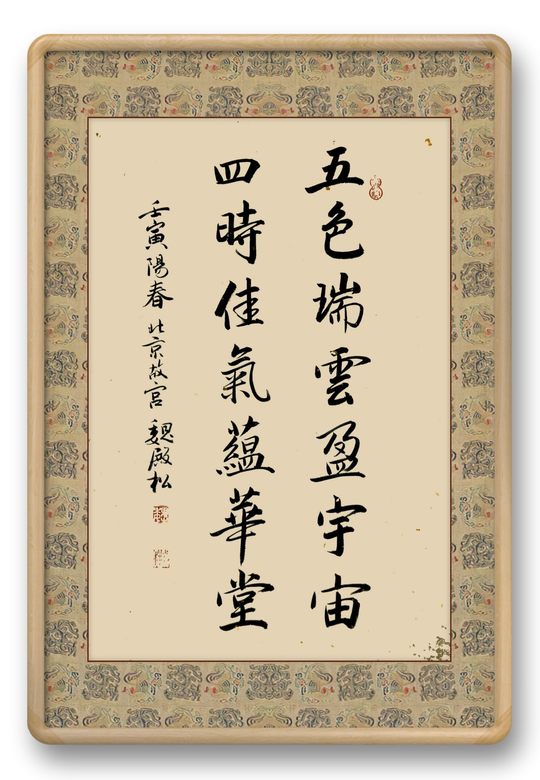 五色瑞雲盈宇宙
四時佳氣蘊華堂
壬寅陽春 北京故宮 魏殿松